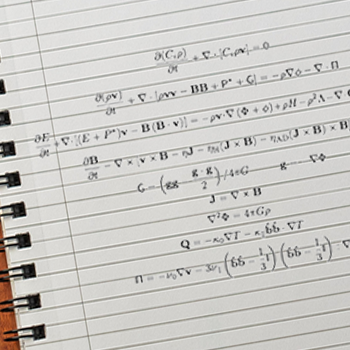 ∂(C_iρ)/∂t + ∇ · [C_iρv] = 0
∂(ρv)/∂t + ∇ · [ρvv − BB + P* + G] = −ρ∇Φ − ∇ · Π
∂E/∂t + ∇·[(E + P*)v − B(B · v)] = −ρv · ∇(Φ + φ) + ρH − ρ²Λ − ∇ ·
∂B/∂t − ∇ × [v × B − ηJ − η_H(J × B) − η_AD(J × B) × B]
G = (gg − g · g / 2) / 4πG g = −∇Φ
J = ∇ × B
∇²Φ = 4πGρ
Q = −κ₀∇T − κ₁b̂b̂ · ∇T
Π = −ν₀∇v − 3ν₁(b̂b̂ − 1/3 I)(b̂b̂ − 1/3 I) : ∇